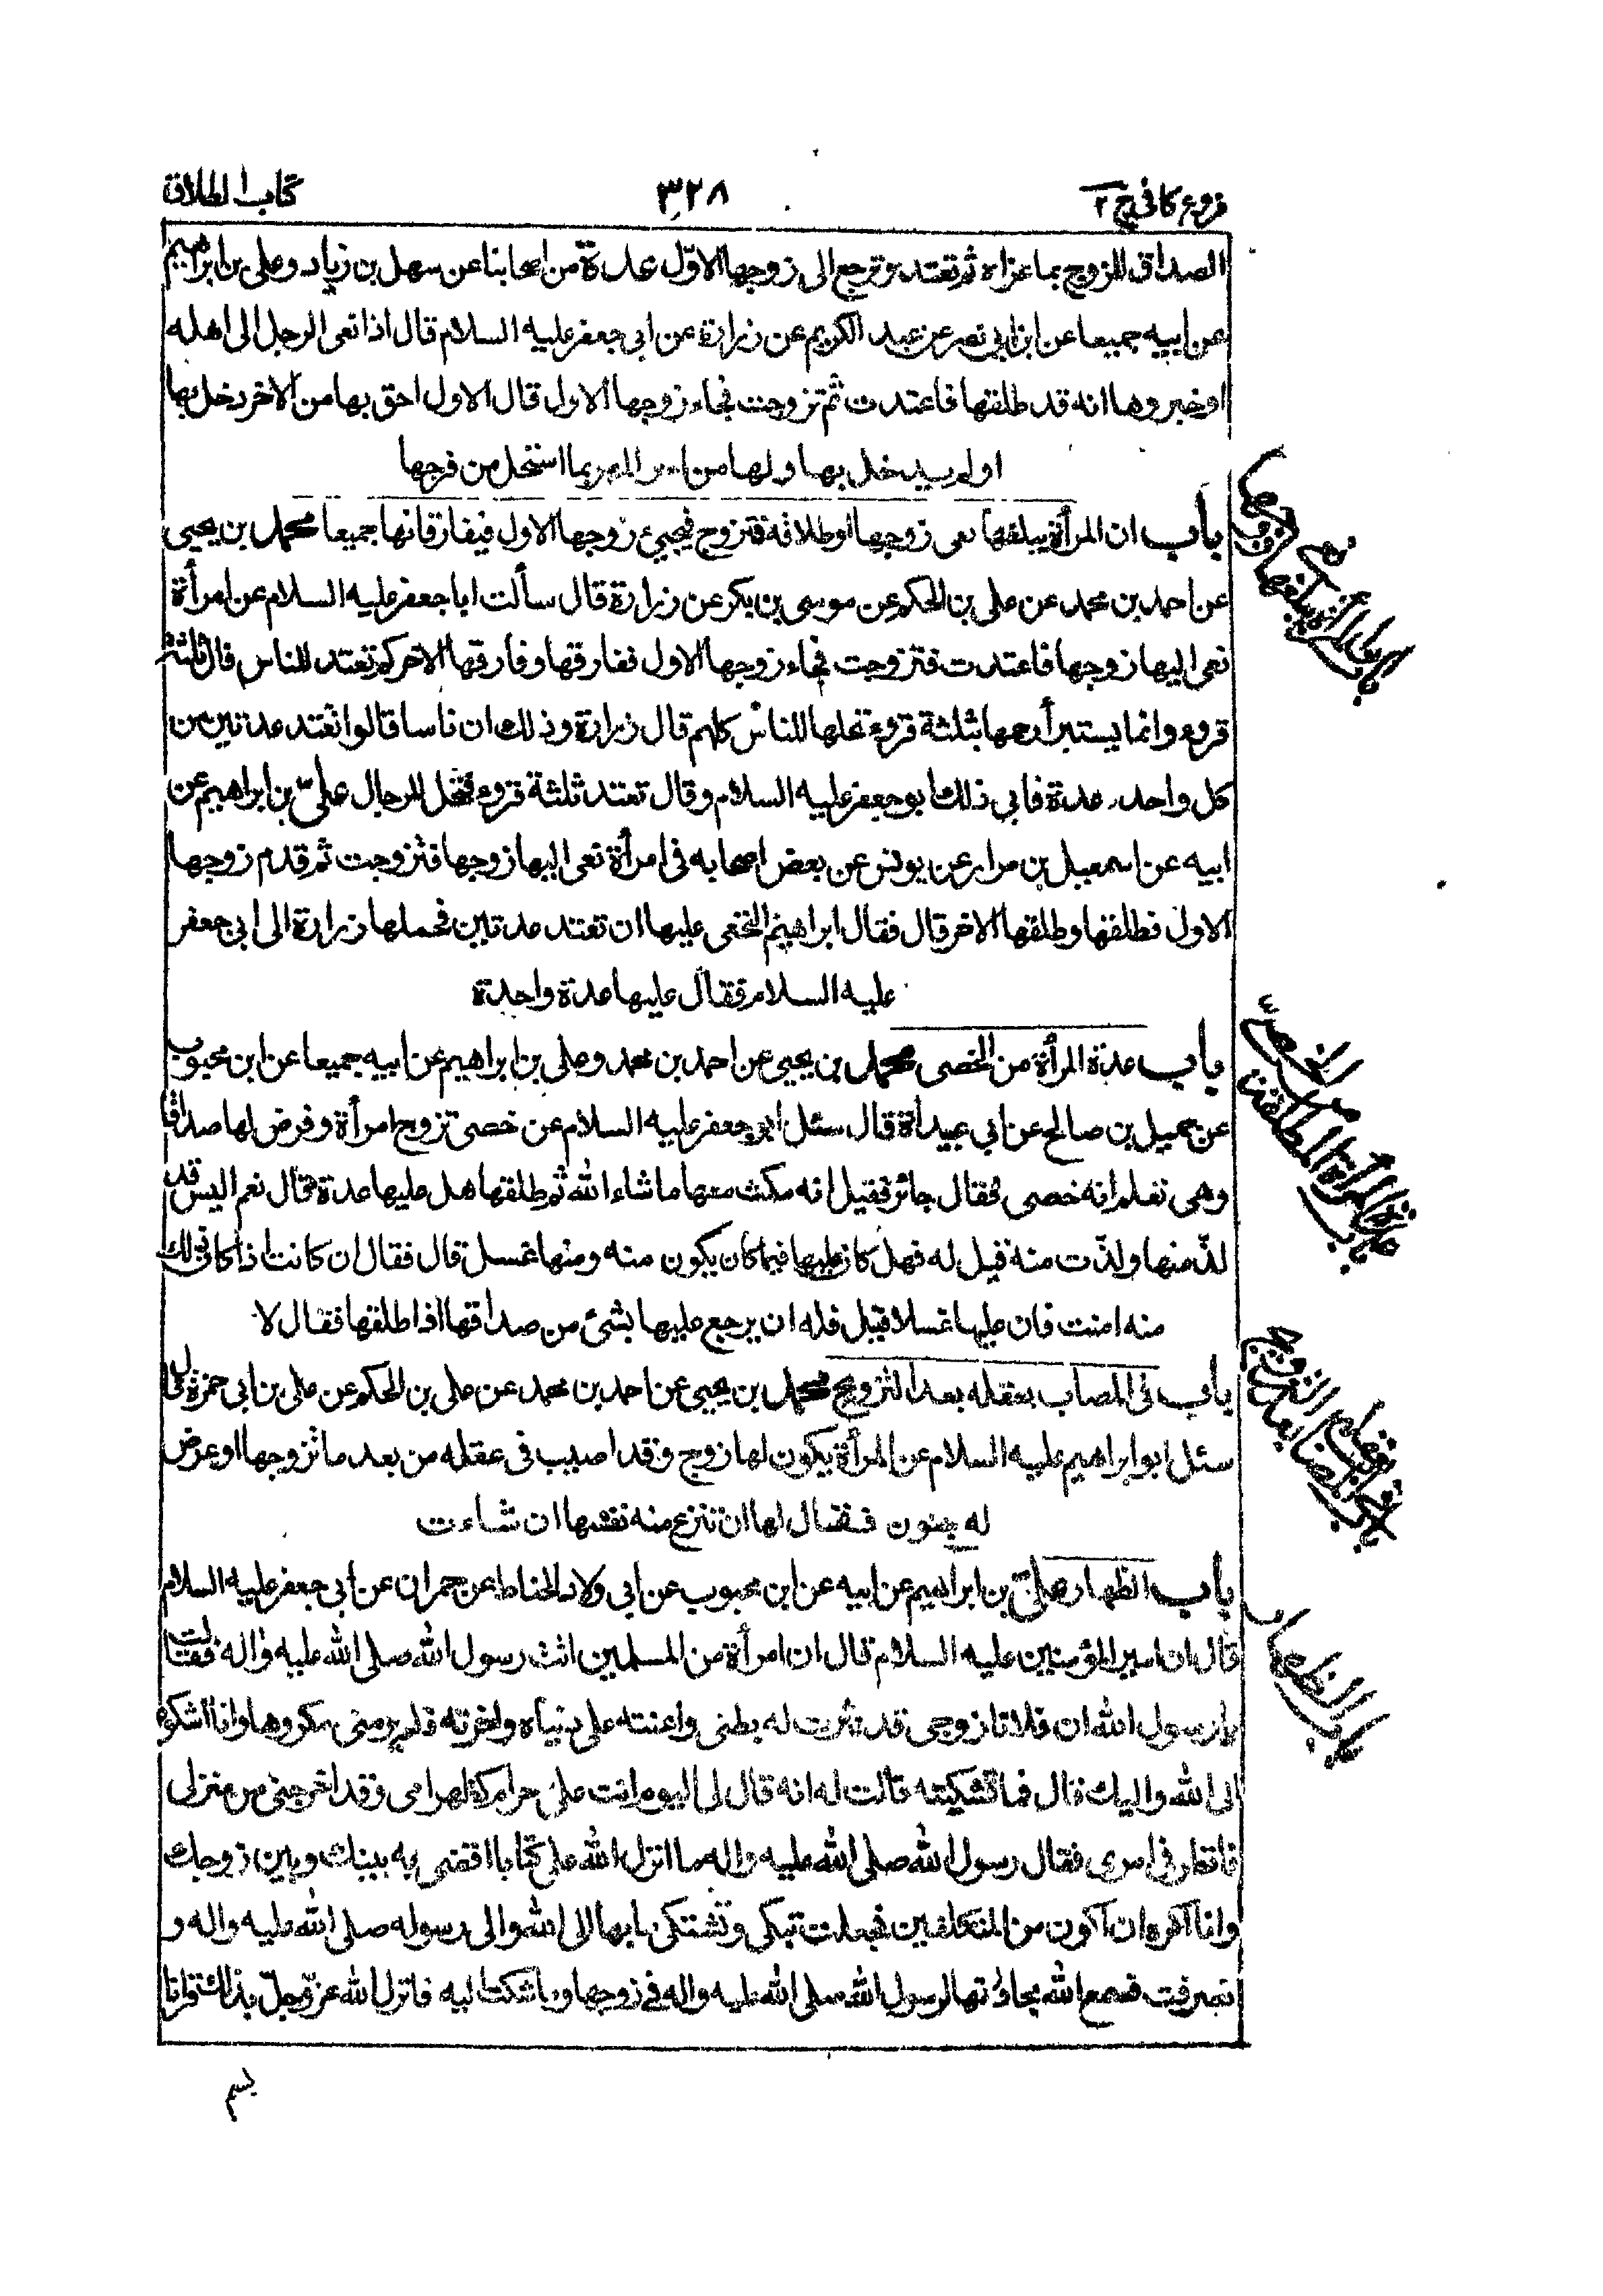 فروع كافى ج ٢
٣٢٨
كتاب الطلاق
الصداق للزوج بما غزاه ثم تعتد وترجع الى زوجها الاوّل عدة من اصحابنا عن سهل بن زياد وعلى بن ابراهيم
عن ابيه جميعا عن ابن ابى نصر عن عبد الكريم عن زرارة عن ابى جعفر عليه السلام قال اذا نعى الرجل الى اهله
او خبروها انه قد طلقها فاعتدت ثم تزوجت فجاء زوجها الاول قال الاول احق بها من الاخر دخل بها
او لم يدخل بها ولها من الاخر المهر بما استحل من فرجها
باب ان المرأة يبلغها نعى زوجها او طلاقه فتزوج فيجيئ زوجها الاول فيفارقانها جميعا محمد بن يحيى
عن احمد بن محمد عن على بن الحكم عن موسى بن بكر عن زرارة قال سألت ابا جعفر عليه السلام عن امرأة
نعى اليها زوجها فاعتدت فتزوجت فجاء زوجها الاول ففارقها وفارقها الاخر كم تعتد للناس قال ثلثة
قروء وانما يستبرأ رحمها بثلثة قروء تحلها للناس كلهم قال زرارة وذلك ان ناسا قالوا تعتد عدتين من
كل واحد عدة فابى ذلك ابو جعفر عليه السلام وقال تعتد ثلثة قروء فتحل للرجال علىّ بن ابراهيم عن
ابيه عن اسمعيل بن مرار عن يونس عن بعض اصحابه فى امرأة نعى اليها زوجها فتزوجت ثم قدم زوجها
الاول فطلقها وطلقها الاخر قال فقال ابراهيم النخعى عليها ان تعتد عدتين فحملها زرارة الى ابى جعفر
عليه السلام فقال عليها عدة واحدة
باب عدة المرأة من الخصى محمد بن يحيى عن احمد بن محمد وعلى بن ابراهيم عن ابيه جميعا عن ابن محبوب
عن جميل بن صالح عن ابى عبيدة قال سئل ابو جعفر عليه السلام عن خصى تزوج امرأة وفرض لها صداقا
وهى تعلم انه خصى فقال جائز فقيل انه مكث معها ما شاء الله ثم طلقها هل عليها عدة قال نعم اليس قد
لذّ منها ولذّت منه قيل له فهل كان عليها فيما كان يكون منه ومنها غسل قال فقال ان كانت اذا كان ذلك
منه امنت فان عليها غسلا قيل فله ان يرجع عليها بشئ من صداقها اذا طلقها فقال لا
باب فى المصاب بعقله بعد التزويج محمد بن يحيى عن احمد بن محمد عن على بن الحكم عن على بن ابى حمزة قال
سئل ابو ابراهيم عليه السلام عن المرأة يكون لها زوج وقد اصيب فى عقله من بعد ما تزوجها او عرض
له جنون فقال لها ان تنزع منه نفسها ان شاءت
باب الظهار علىّ بن ابراهيم عن ابيه عن ابن محبوب عن ابى ولاد الحناط عن حمران عن ابى جعفر عليه السلام
قال ان امير المؤمنين عليه السلام قال ان امرأة من المسلمين اتت رسول الله صلى الله عليه واله فقالت
يا رسول الله ان فلانا زوجى قد نثرت له بطنى واعنته على دنياه واخرته فلم ير منى مكروها وانا اشكوه
الى الله واليك قال فما تشكينه قالت له انه قال لى اليوم انت علىّ حرام كظهر امى وقد اخرجنى من منزلى
فانظر فى امرى فقال رسول الله صلى الله عليه واله ما انزل الله علىّ كتابا اقضى به بينك وبين زوجك
وانا اكره ان اكون من المتكلفين فجعلت تبكى وتشتكى ما بها الى الله والى رسوله صلى الله عليه واله و
انصرفت فسمع الله محاورتها لرسول الله صلى الله عليه واله فى زوجها وما شكت اليه فانزل الله عزّ وجلّ بذلك قرانا
بسم
باب الظهار